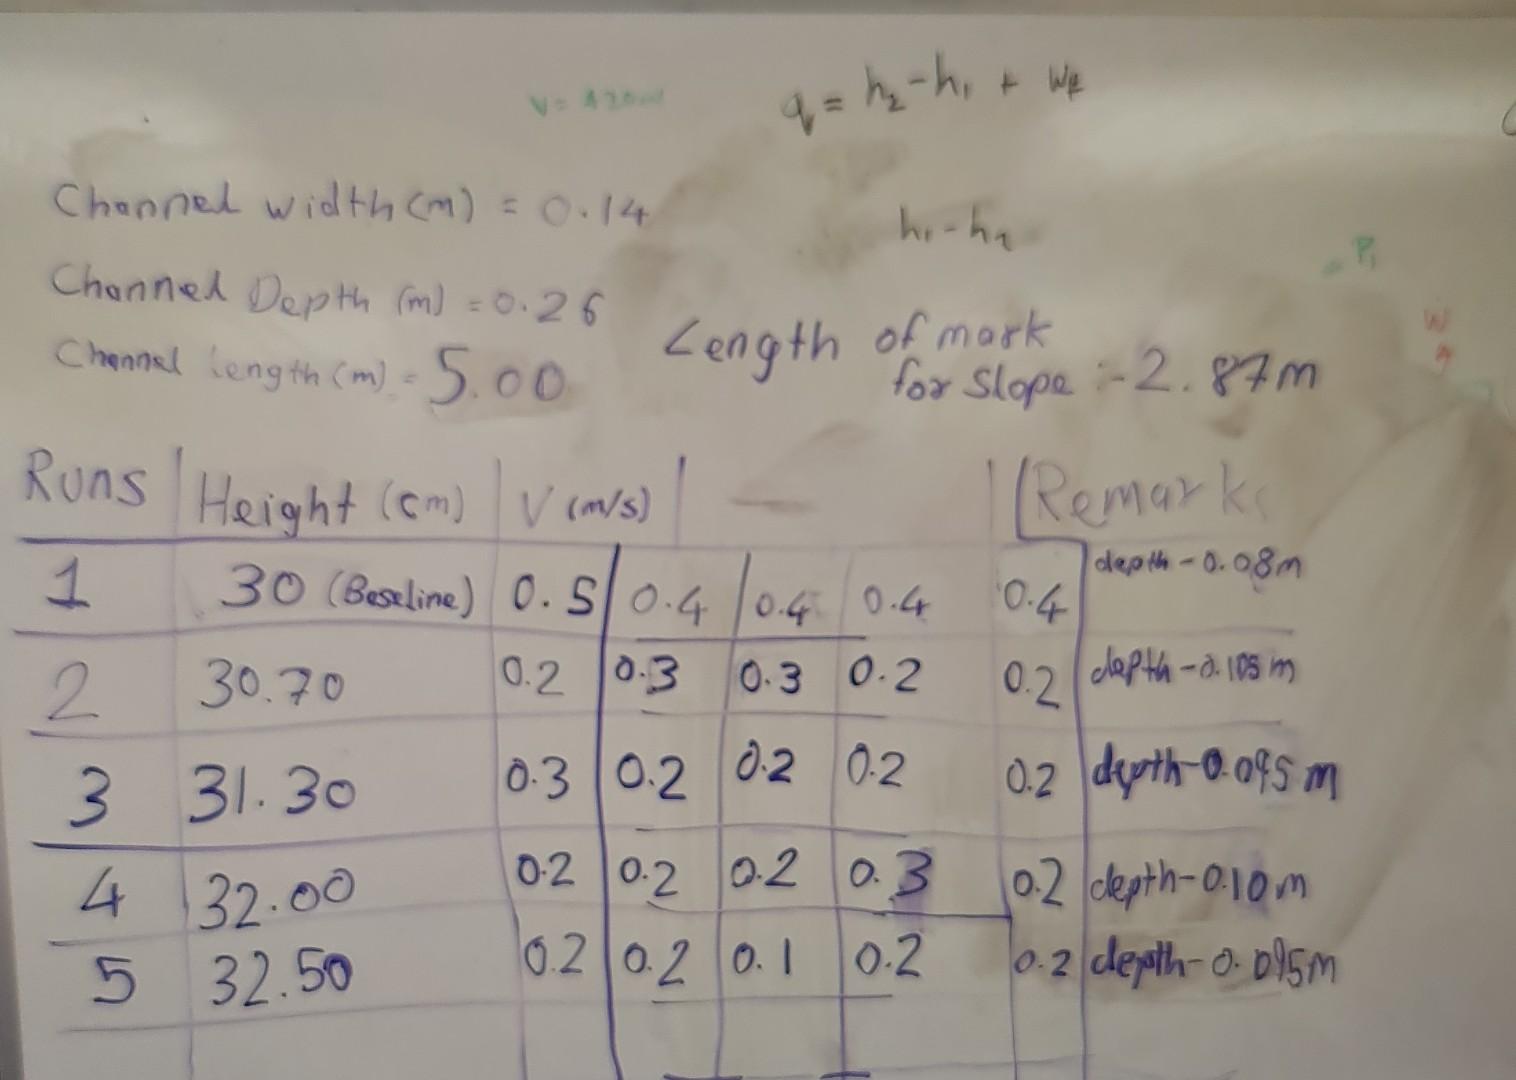 q = h₂-h₁ +
Channel width (m) = 0.14
h₁-h₂
P₁
Channel Depth (m) = 0.26
Length of mark
for Slope :- 2.87m
W
Channel length (m) = 5.00
Runs Height (cm) V (m/s) Remarks
1 30 (Baseline) 0.5 0.4 0.4 0.4 0.4 depth-0.08m
2 30.70 0.2 0.3 0.3 0.2 0.2 depth-0.105m
3 31.30 0.3 0.2 0.2 0.2 0.2 depth-0.095m
4 32.00 0.2 0.2 0.2 0.3 0.2 depth-0.10m
5 32.50 0.2 0.2 0.1 0.2 0.2 depth-0.095m